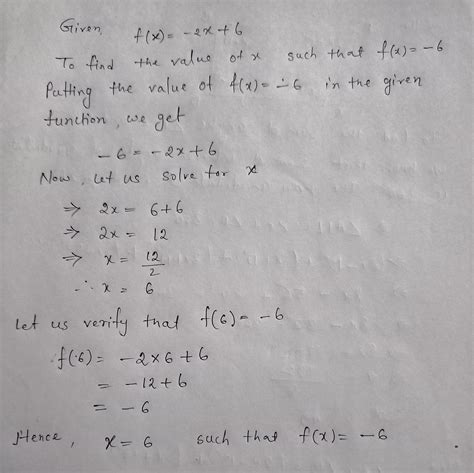 Given, f(x) = -2x + 6
To find the value of x such that f(x) = -6
Putting the value of f(x) = -6 in the given
function, we get
-6 = -2x + 6
Now, let us solve for x
⇒ 2x = 6+6
⇒ 2x = 12
⇒ x = 12/2
∴ x = 6
Let us verify that f(6) = -6
f(6) = -2×6 + 6
= -12 + 6
= -6
Hence, x = 6 such that f(x) = -6